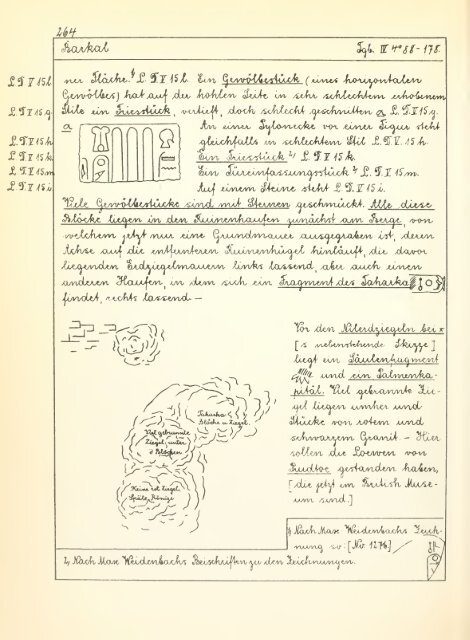 264
Barkal
Tgb. IV 4° 88 - 178.
L D V 15 l.
ner Fläche. L D V 15 l. Ein Gewölbestück (eines horizontalen
Gewölbes) hat auf der hohlen Seite in sehr schlechtem erhobenem
L D V 15 g.
Stile ein Friesstück, vertieft, doch schlecht geschnitten a L. D. V 15 g.
a
An einer Pylonecke vor einer Figur steht
L D V 15 h
gleichfalls in schlechtem Stil L. D. V. 15 h.
L D V 15 k
Ein Friesstück 2) L D V 15 k.
L D V 15 m
Ein Türeinfassungsstück 2) L. D V 15 m.
L D V 15 i.
Auf einem Steine steht L D. V 15 i.
Viele Gewölbestücke sind mit Sternen geschmückt. Alle diese
Blöcke liegen in den Ruinenhaufen zunächst am Berge, von
welchem jetzt nur eine Grundmauer ausgegraben ist, deren
Achse auf die entfernteren Ruinenhügel hinläuft, die davor
liegenden Erdziegelmauern links lassend, aber auch einen
anderen Haufen, in dem sich ein Fragment des Taharka
findet, rechts lassend —
Vor den Nilerdziegeln bei x
[s nebenstehende Skizze]
liegt ein Säulenfragment
und ein Palmenka-
pitäl. Viel gebrannte Zie-
gel liegen umher und
Stücke von rotem und
schwarzem Granit — Hier
sollen die Loewen von
Rudtoc gestanden haben,
[die jetzt im British Muse-
um sind.]
Taharka
Blöcke u Ziegel.
Viel gebrannte
Ziegel, unter
d Blöcken
Keine rot. Ziegel
1) Nach Max Weidenbachs Zeich-
nung so. [No 1276]
2) Nach Max Weidenbachs Beischriften zu den Zeichnungen.